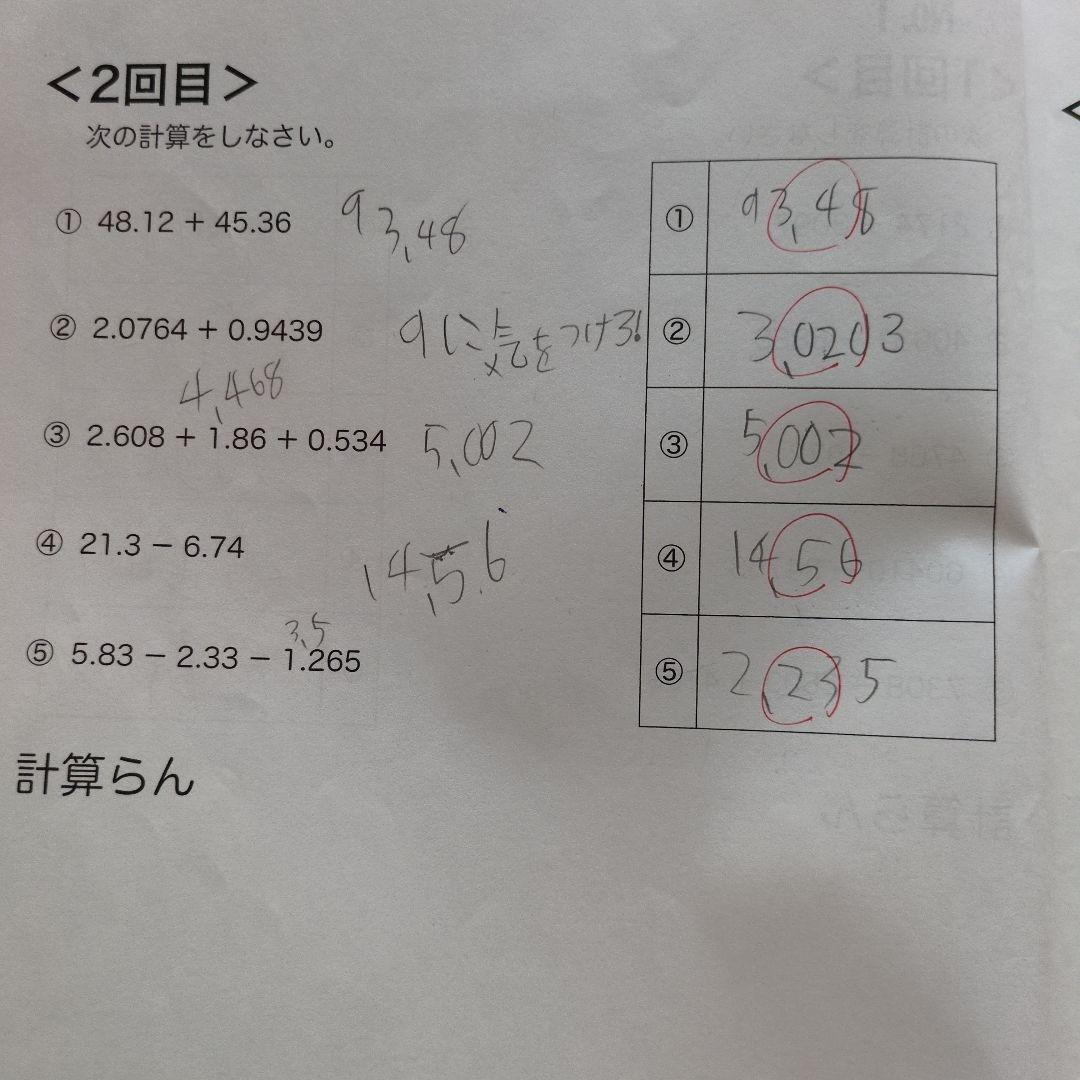 <2回目>
次の計算をしなさい。
① 48.12 + 45.36 93,48
② 2.0764 + 0.9439 9に気をつけろ!
4,468
③ 2.608 + 1.86 + 0.534 5,002
④ 21.3 − 6.74 14,5.6
3,5
⑤ 5.83 − 2.33 − 1.265
計算らん
① 93,48
② 3,0203
③ 5,002
④ 14,56
⑤ 2,235